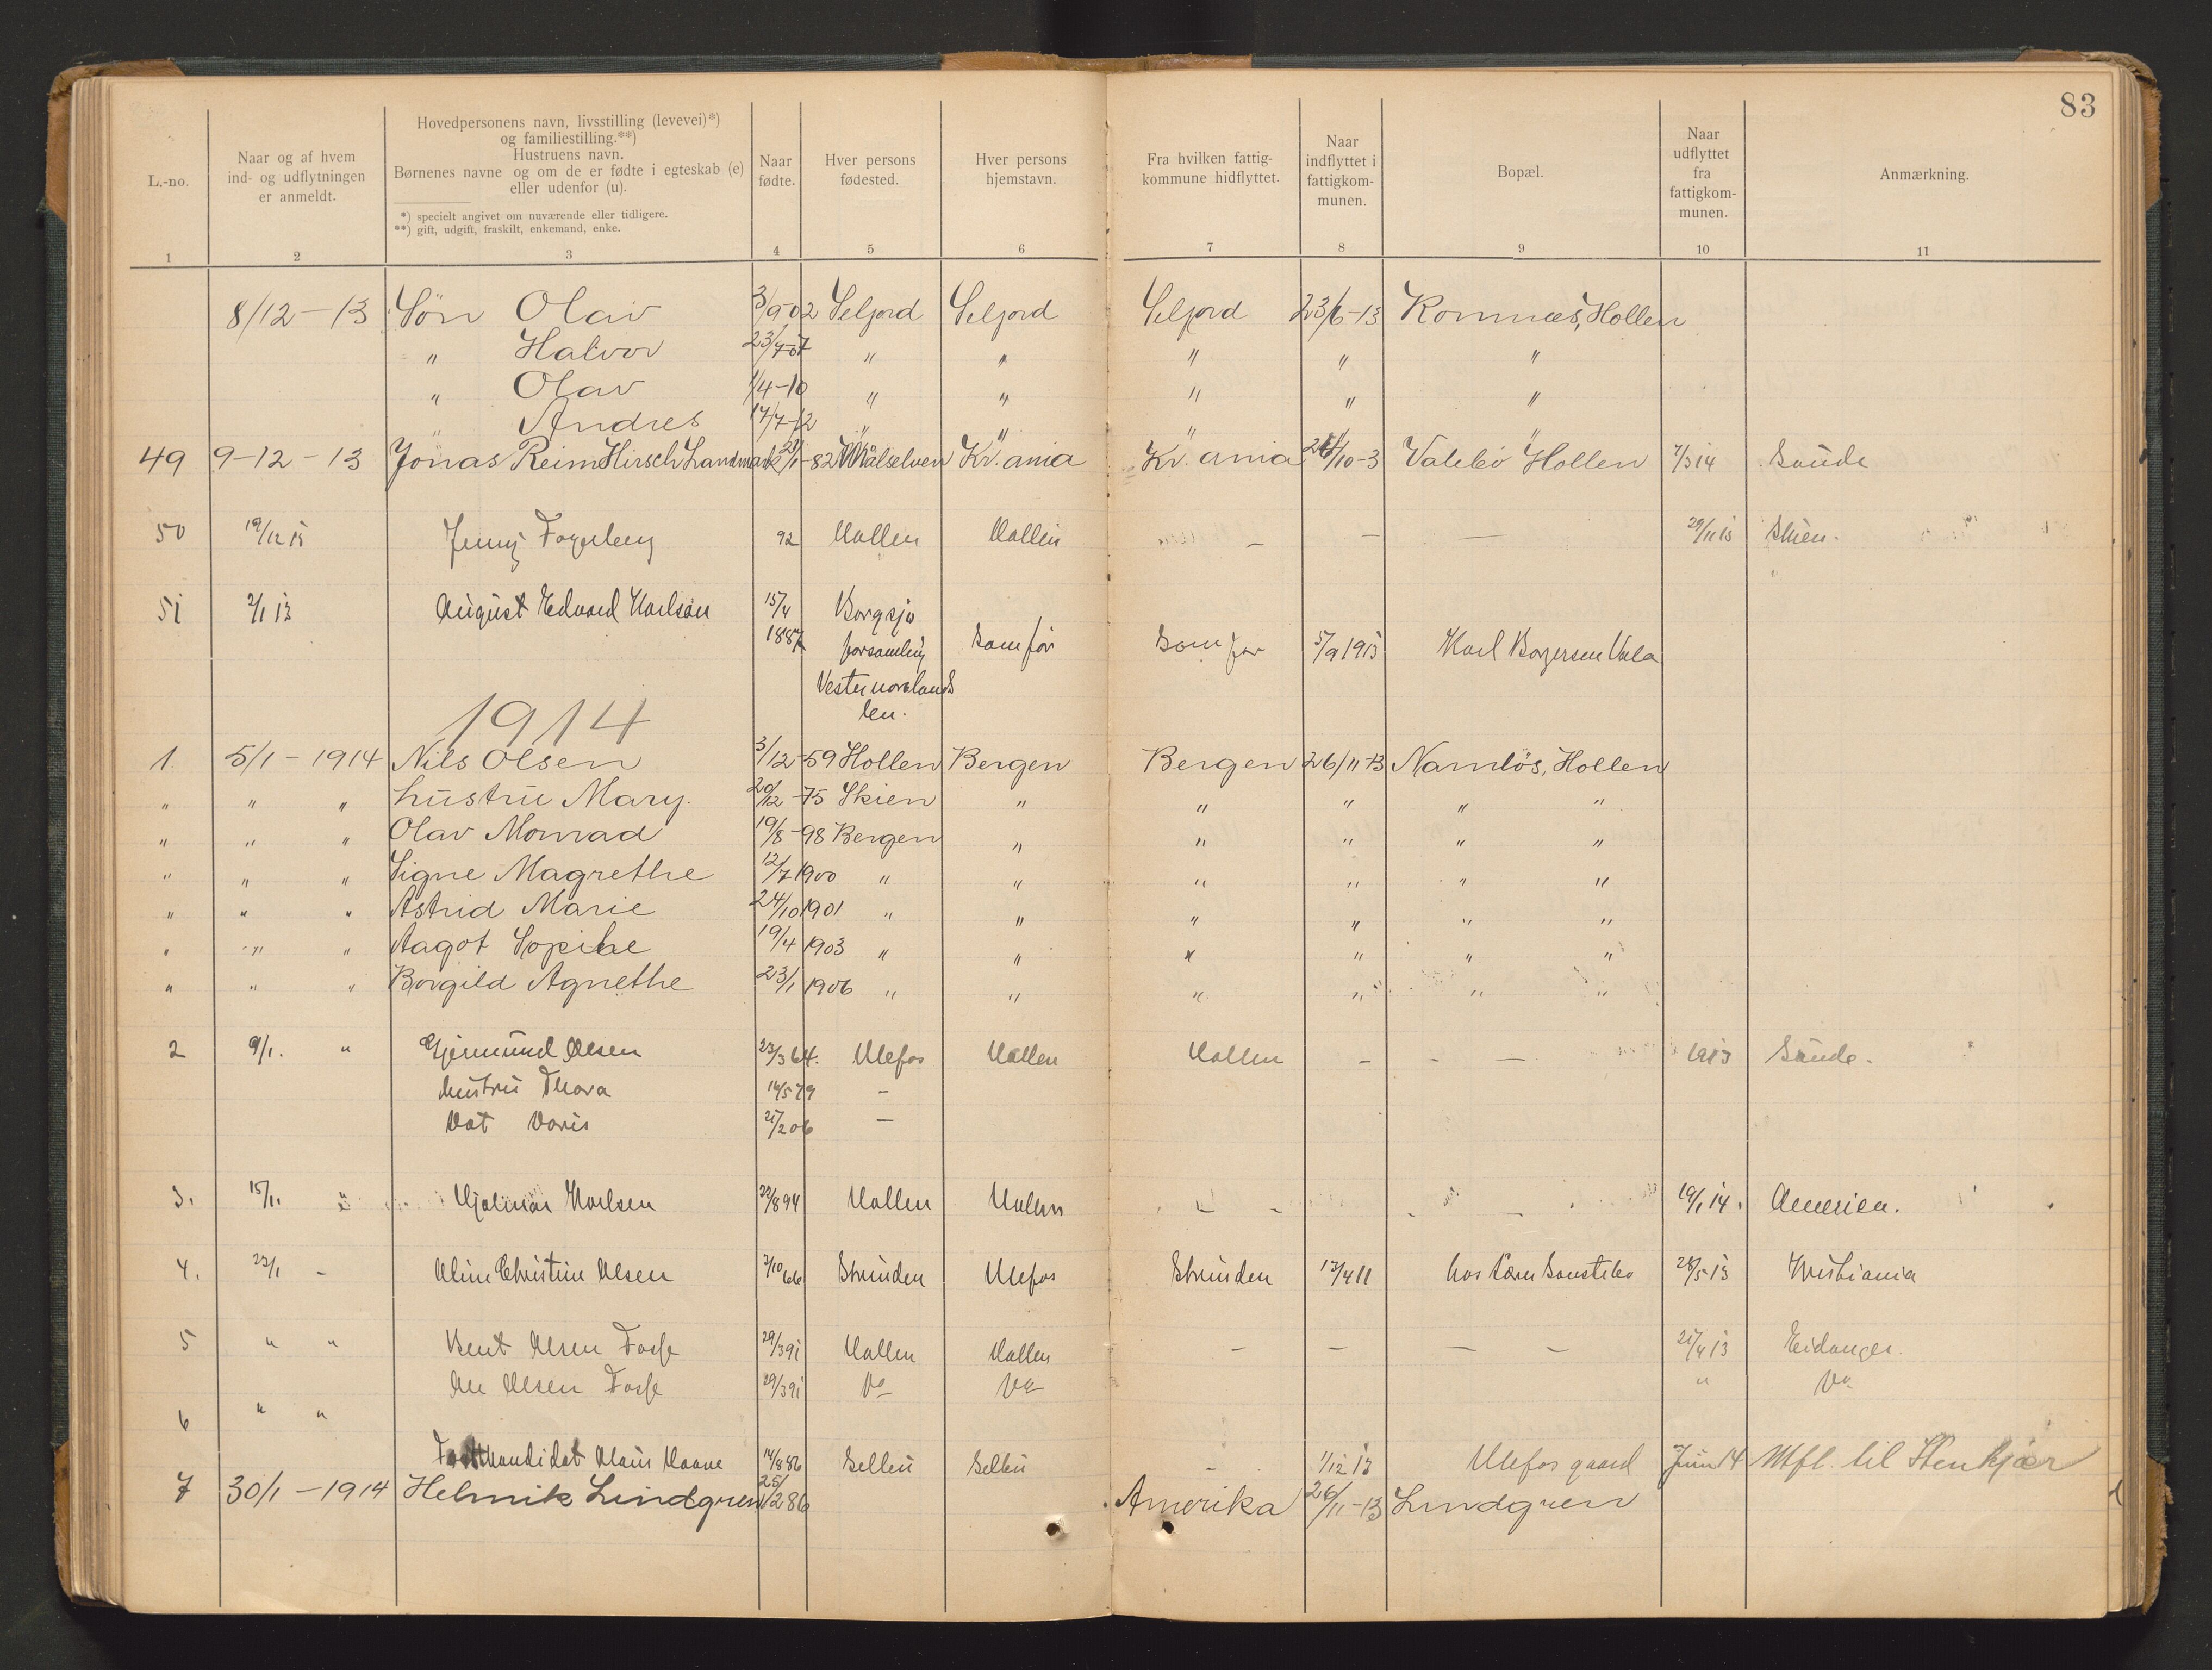 83
L.-no.
Naar og af hvem
ind- og udflytningen
er anmeldt.
Hovedpersonens navn, livsstilling (levevei)*)
og familiestilling.**)
Hustruens navn.
Børnenes navne og om de er fødte i egteskab (e)
eller udenfor (u).
*) specielt angivet om nuværende eller tidligere.
**) gift, udgift, fraskilt, enkemand, enke.
Naar
fødte.
Hver persons
fødested.
Hver persons
hjemstavn.
Fra hvilken fattig-
kommune hidflyttet.
Naar
indflyttet i
fattigkom-
munen.
Bopæl.
Naar
udflyttet
fra
fattigkom-
munen.
Anmærkning.
1 2 3 4 5 6 7 8 9 10 11
8/12-13 Søn Olav 3/9 02 Seljord Seljord Seljord 23/6-13 Romnæs, Hollen
" Halvor 23/4-07 " " " " "
" Olav 1/4-10 " " " " "
" Andres 17/7-12 " " " "
49 9-12-13 Jonas Reim Hirsch Landmark 21/1-82 Målselven Kr.ania Kr.ania /10-3 Valebø Hollen 7/3 14 Saude
50 19/12 13 Jenny Fagerberg 92 Hollen Hollen - - - 29/11 13 Skien.
51 2/1 13 August Edvard Karlsen 15/4 Borgsjø
1887 forsamling Som før Som før 5/9 1913 Karl Borgersen Vala
Vesternorlands
len.
1914
1. 5/1-1914 Nils Olsen 3/12-59 Hollen Bergen Bergen 26/11-13 Namløs, Hollen
" " " hustru Mary. 20/12-75 Skien " " " " "
" " " Olav Monrad 19/8-98 Bergen " " " " "
" " " Signe Magrethe 12/7 1900 " " " " " "
" " " Astrid Marie 24/10 1901 " " " " " "
" " " Aagot Sopihe 19/4 1903 " " " " " "
" " " Borgild Agnethe 23/1 1906 " " " " " "
2 9/1. " Gjermund Olsen 23/3 64. Ulefos Hollen Hollen - - - 1913 Saude.
Hustru Thora 14/5 79 -
Dat Doris 21/2 06 -
3. 15/1. " Hjalmar Karlsen 22/8 94 Hollen Hollen - - - - 19/1 14. America.
4. 23/1 - Oline Christine Olsen 3/10 66 Strinden Ulefos Strinden 13/4 11 hos 28/5 13 Kristiania
5 " " Bent Olsen Fosse 29/3 91 Hollen Hollen - - - - 21/4 13 Eidanger.
Ole Olsen Fosse 29/3 91 Do Do " Do
6 " "
Forstkandidat 14/8 86 - 1/12 13 Ulefos gaard Juni 14 Utfl. til Stenkjær
7 30/1-1914 Helmik Lindgren 25/12 86 Amerika 26/11-13 Lindgren